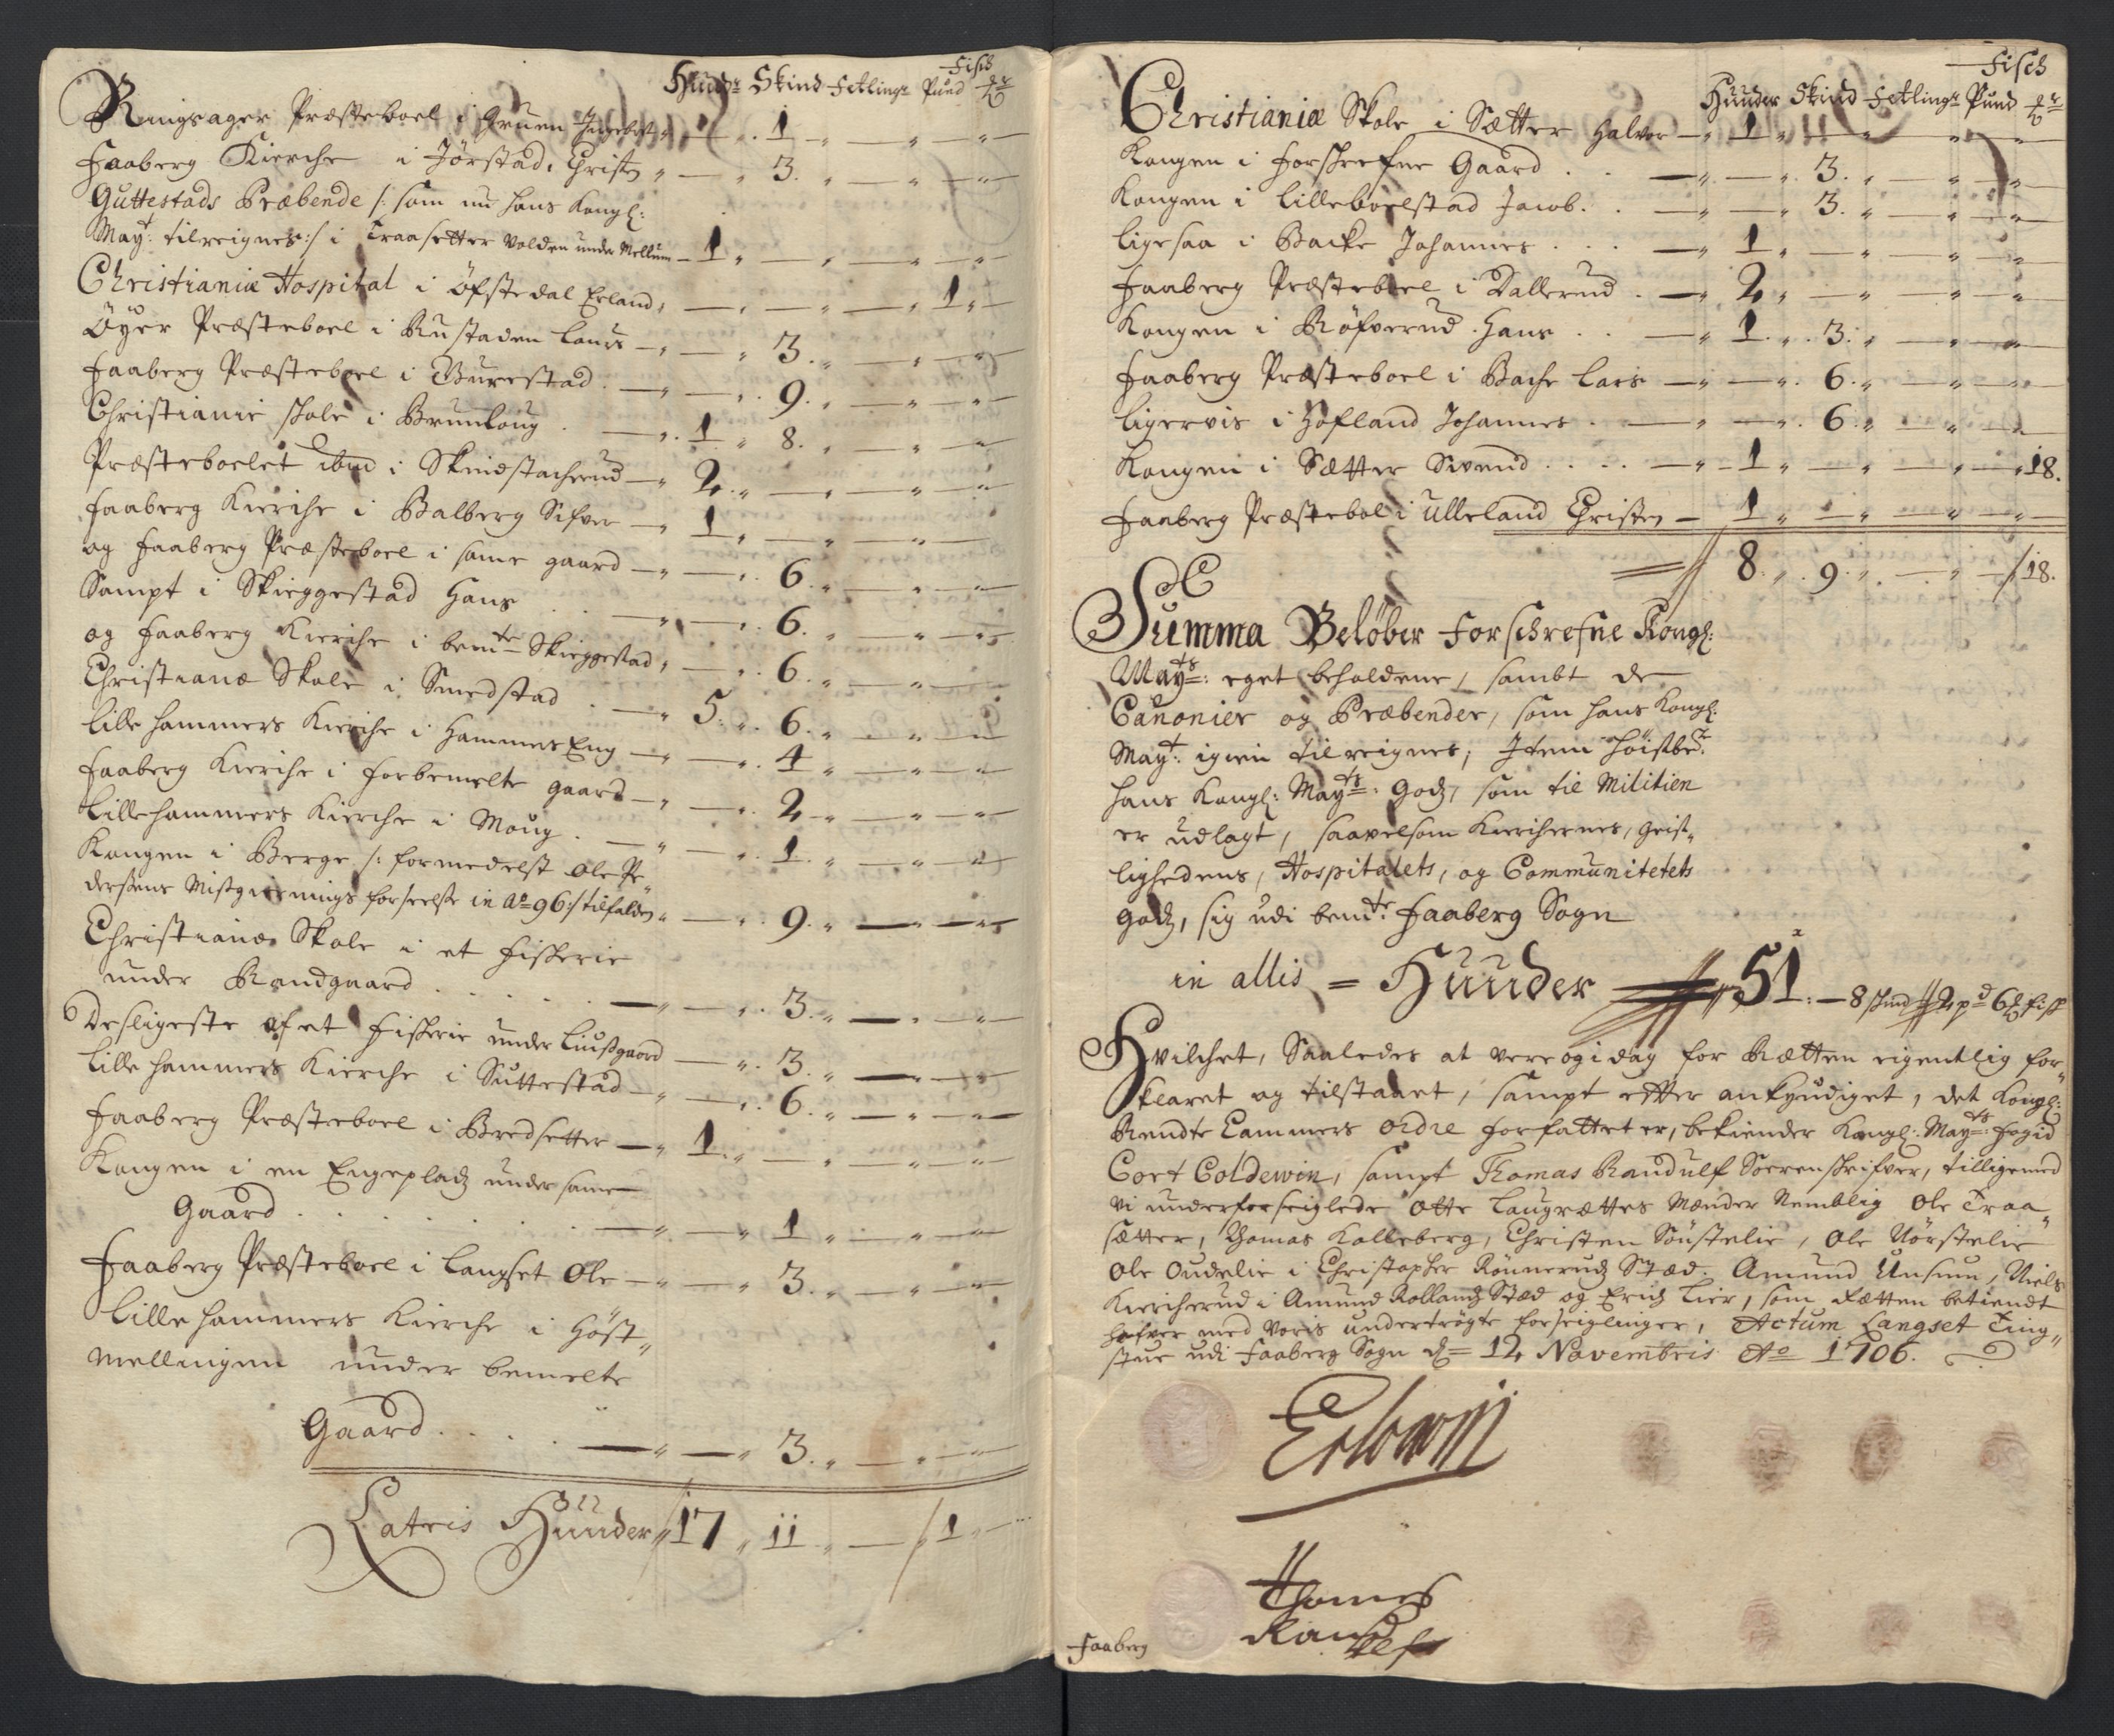 Fisch
Hud: Skind Fetling: Pund
Ringsager Præsteboel i Gruen 1
Faaberg Kierche i Jørstad, Christen 3.
Guttestads Præbende /: som nu hans Kongl:
Mayt: tilreignes :/ i Traasetter Volden under Mellum 1
Christianiæ Hospital i Öfstedal Erland 1
Öyer Præsteboel i Rustaden Laurs 3.
Faaberg Præsteboel i Burestad 9.
Christianie skole i Brunloug 1 8.
Præsteboelet ibm i Skindstacherud 2.
Faaberg Kierche i Balberg Sifver 1
og Faaberg Præsteboel i same gaard 6.
Sampt i Skieggestad Hans 6.
og Faaberg Kierche i bemte Skieggestad 6.
Christianæ Skole i Smedstad 5. 6.
Lille hammers Kierche i Hammers Eng 4
Faaberg Kierche i forbemelte gaard 2
Lillehammers Kierche i Moug 1.
Kongen i Berge /: formedelst Ole Pe„
dersens Misgiernings forseelse in Ao 96 :/ tilfalden 9.
Christianæ Skole i et Fiskerie
under Randgaard 3.
Desligeste af et Fiskerie under Liusgaard 3.
Lille hammers Kierche i Suttestad 6.
Faaberg Præsteboel i Bredsetter 1.
Kongen i en Engeplads under same
Gaard 1
Faaberg Præsteboel i Langset Ole 3.
Lille hammers Kierche i Höst„
mellingen under bemelte
Gaard 3.
Latris Huuder 17 11 1
Fisch
Huuder Skind Fetling: Pund
Christianiæ Skole i Sætter Halvor 1
Kongen i forskrefne Gaard 3.
Kongen i Lilleboelstad Jacob 3.
Ligesaa i Backe Johannes 1
Faaberg Præsteboel i Dallerud 2
Kongen i Röfverud Hans 1. 3.
Faaberg Præsteboel i Bache Lars 6.
Ligervis i Hofland Johannes 6.
Kongen i Sætter Svend 1 18.
Faaberg Præstebol i Ulleland Christen 1
8. 9. 18.
Summa Beløber Forschrefne Kongl:
Mayts: eget beholdene, sambt de
Canonier og Præbender, som hans Kongl:
Mayt: igien tilreignes, Item höistbet:
hans Kongl: Mayts: Gods, som til Militien
er udlagt, saavelsom Kierchernes, Geist„
lighedens, Hospitalets, og Communitetets
gods, sig udi bemte: Faaberg Sogn
in allis = Huuder 51. — 8 skind 2 pd 6 fisk
Hvilchet, Saaledes at vere og i dag for Rætten eigentlig for„
klaret og tilstaaet, sampt efter ankyndiget, det Kongl:
Rendte Cammers Ordre forfattet er, bekiender Kongl: Mayts: Fogid
Cort Coldewin, sampt Thomas Randulf Sorenskrifver, tilligemed
vi underforseiglede Otte Laugrættes Mænder Nemblig Ole Traa„
sætter, Thomas Kalleberg, Christen Söustelie, Ole Nörstelie
Ole Oudelie i Christopher Rönneruds Stæd. Amund Unsum, Niels
Kiercherud i Amund Rollands Stæd og Erich Lier, som Rætten betiendt
hafver med voris undertrögte forseiglinger, Actum Langset Ting„
stue udi Faaberg Sogn d= 12 Novembris Ao 1706.
Thomes
Randulf
Faaberg